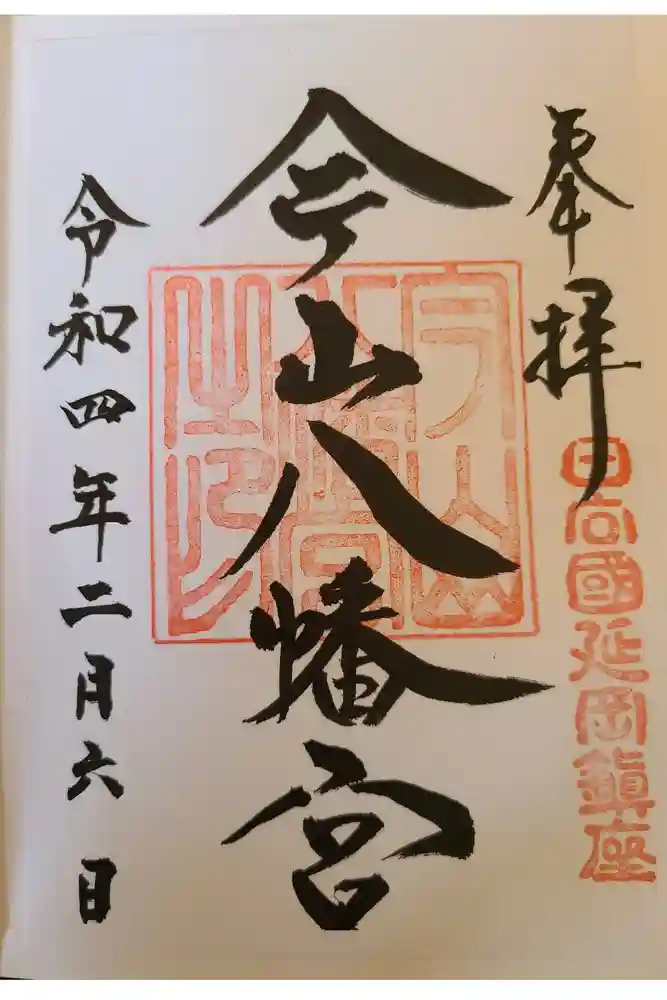 奉拝
日向國延岡鎮座
今山八幡宮
今山八幡宮之印
令和四年二月六日